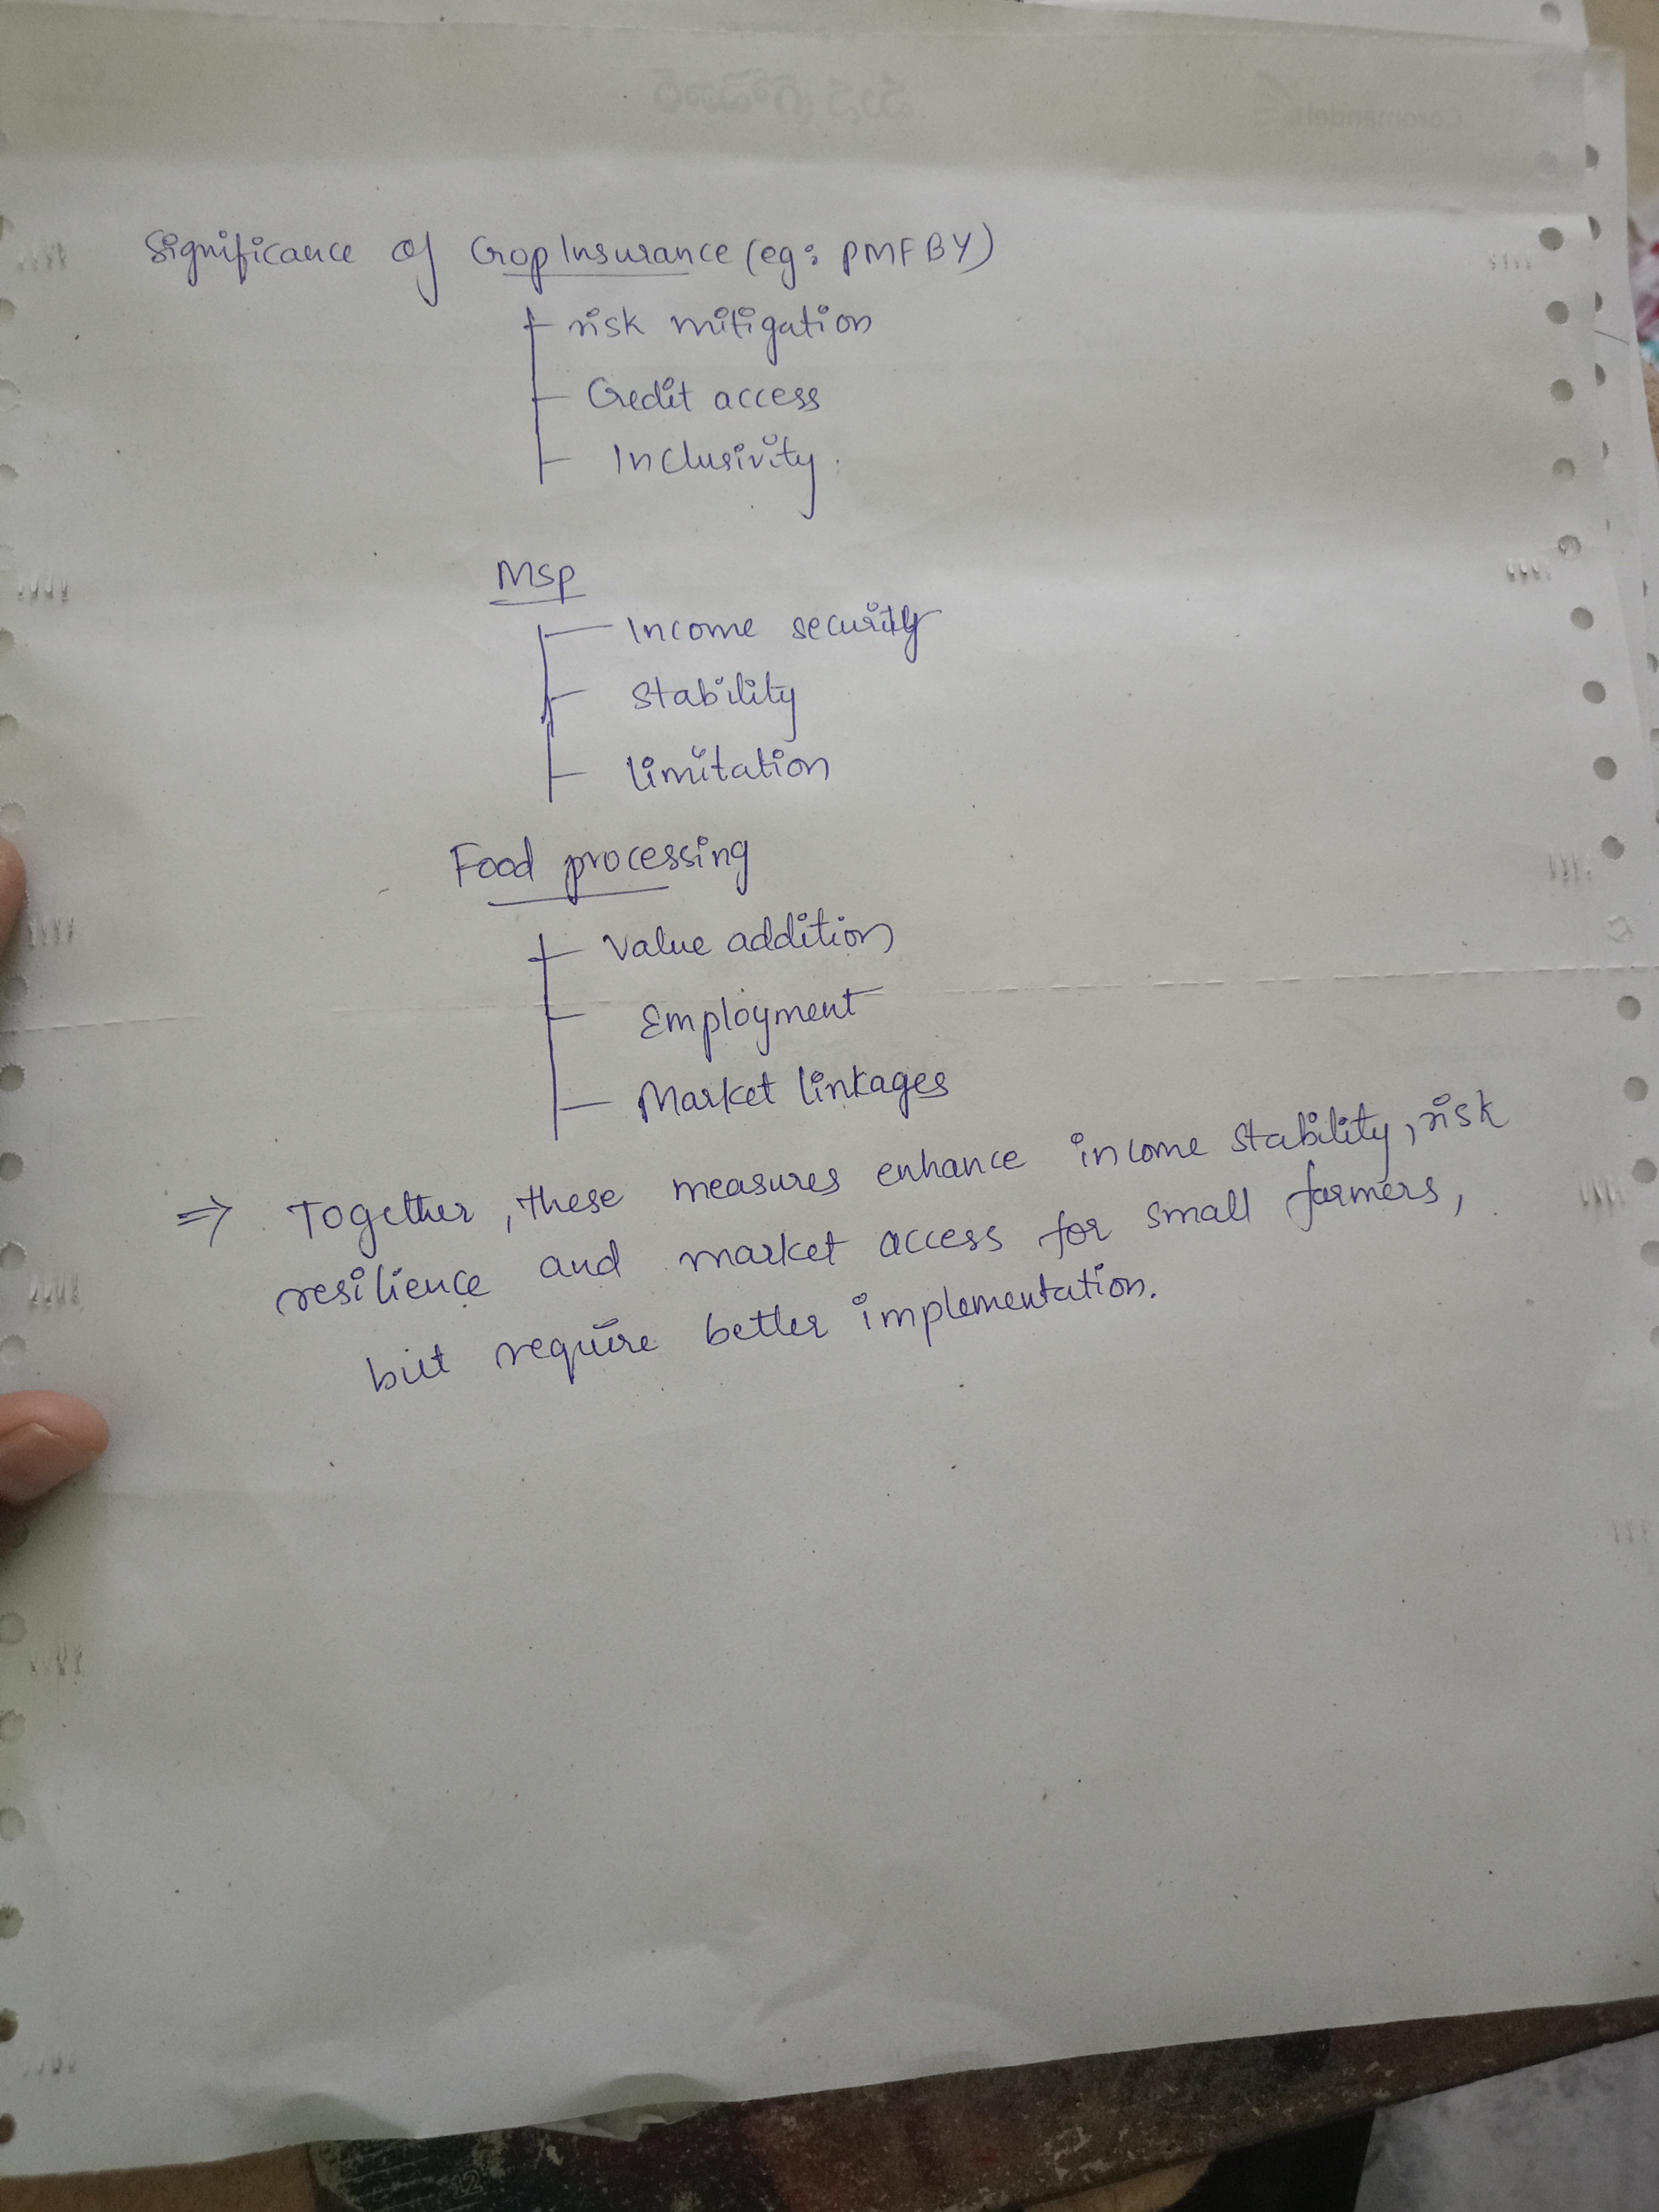 Significance of Crop Insurance (eg: PMFBY)
risk mitigation
Credit access
Inclusivity.
MSP
Income security
Stability
limitation
Food processing
Value addition
Employment
Market linkages
⇒ Together, these measures enhance income stability, risk
resilience and market access for small farmers,
but require better implementation.